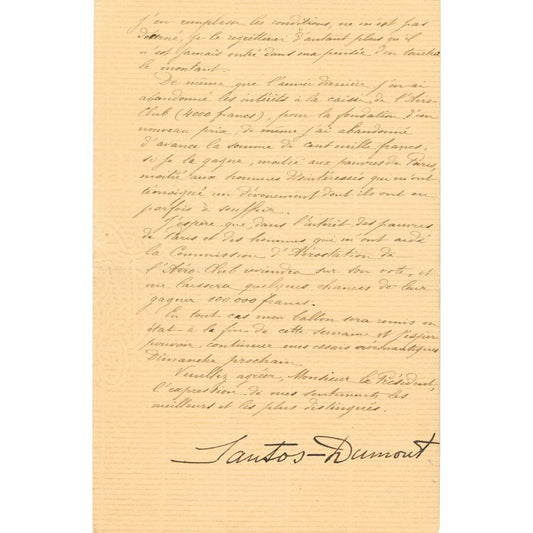 j'en remplisse les conditions, ne m'est pas
décerné, je le regretterai d'autant plus qu'il
n'est jamais entré dans ma pensée d'en toucher
le montant.
De même que l'année dernière j'en ai
abandonné les intérêts à la caisse de l'Aéro-
Club (4000 francs), pour la fondation d'un
nouveau prix, de même j'ai abandonné
d'avance la somme de cent mille francs,
si je la gagne, moitié aux pauvres de Paris,
moitié aux hommes désintéressés qui m'ont
témoigné un dévouement dont ils ont eu
parfois à souffrir.
J'espère que, dans l'intérêt des pauvres
de Paris et des hommes qui m'ont aidé
la Commission d'Aérostation de
l'Aéro-Club reviendra sur son vote, et
me laissera quelques chances de leur
gagner 100 000 francs.
En tout cas mon ballon sera remis en
état à la fin de cette semaine et j'espère
pouvoir continuer mes essais aéronautiques
Dimanche prochain.
Veuillez agréer, Monsieur le Président,
l'expression de mes sentiments les
meilleurs et les plus distingués.
Santos-Dumont